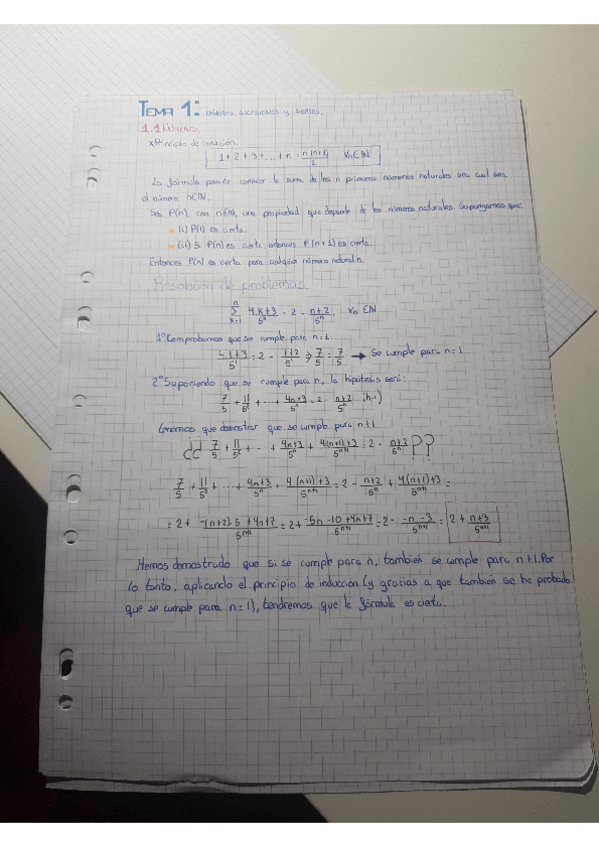 TEMA 1: números, sucesiones y series.
1.1 Números
* Principio de inducción.
1 + 2 + 3 + ... + n = n(n+1)/2 ∀n∈ℕ
La fórmula permite conocer la suma de los n primeros números naturales sea cual sea
el número n∈ℕ.
Sea P(n) con n∈ℕ, una propiedad que depende de los números naturales. Supongamos que:
(i) P(1) es cierta.
(ii) Si P(n) es cierta, entonces P(n+1) es cierta.
Entonces P(n) es cierta para cualquier número natural n.
Resolución de problemas
n Σ k=1 4k+3/5^k = 2 - n+2/5^n, ∀n∈ℕ
1º Comprobamos que se cumple para n=1.
4·1+3/5^1 = 2 - 1+2/5^1 ; 7/5 = 7/5 → Se cumple para n=1
2º Suponiendo que se cumple para n, la hipótesis será:
7/5 + 11/5² + ... + 4n+3/5^n = 2 - n+2/5^n
Tenemos que demostrar que se cumple para n+1
¿¿ 7/5 + 11/5² + ... + 4n+3/5^n + 4(n+1)+3/5^n+1 = 2 - n+3/5^n ??
7/5 + 11/5² + ... + 4n+3/5^n + 4(n+1)+3/5^n+1 = 2 - n+2/5^n + 4(n+1)+3/5^n+1 =
= 2 + -(n+2)·5 + 4n+7/5^n+1 = 2 + -5n-10+4n+7/5^n+1 = 2 - -n-3/5^n+1 = 2 + n+3/5^n+1
Hemos demostrado que si se cumple para n, también se cumple para n+1. Por
lo tanto, aplicando el principio de inducción (y gracias a que también se ha probado
que se cumple para n=1), tendremos que la fórmula es cierta.